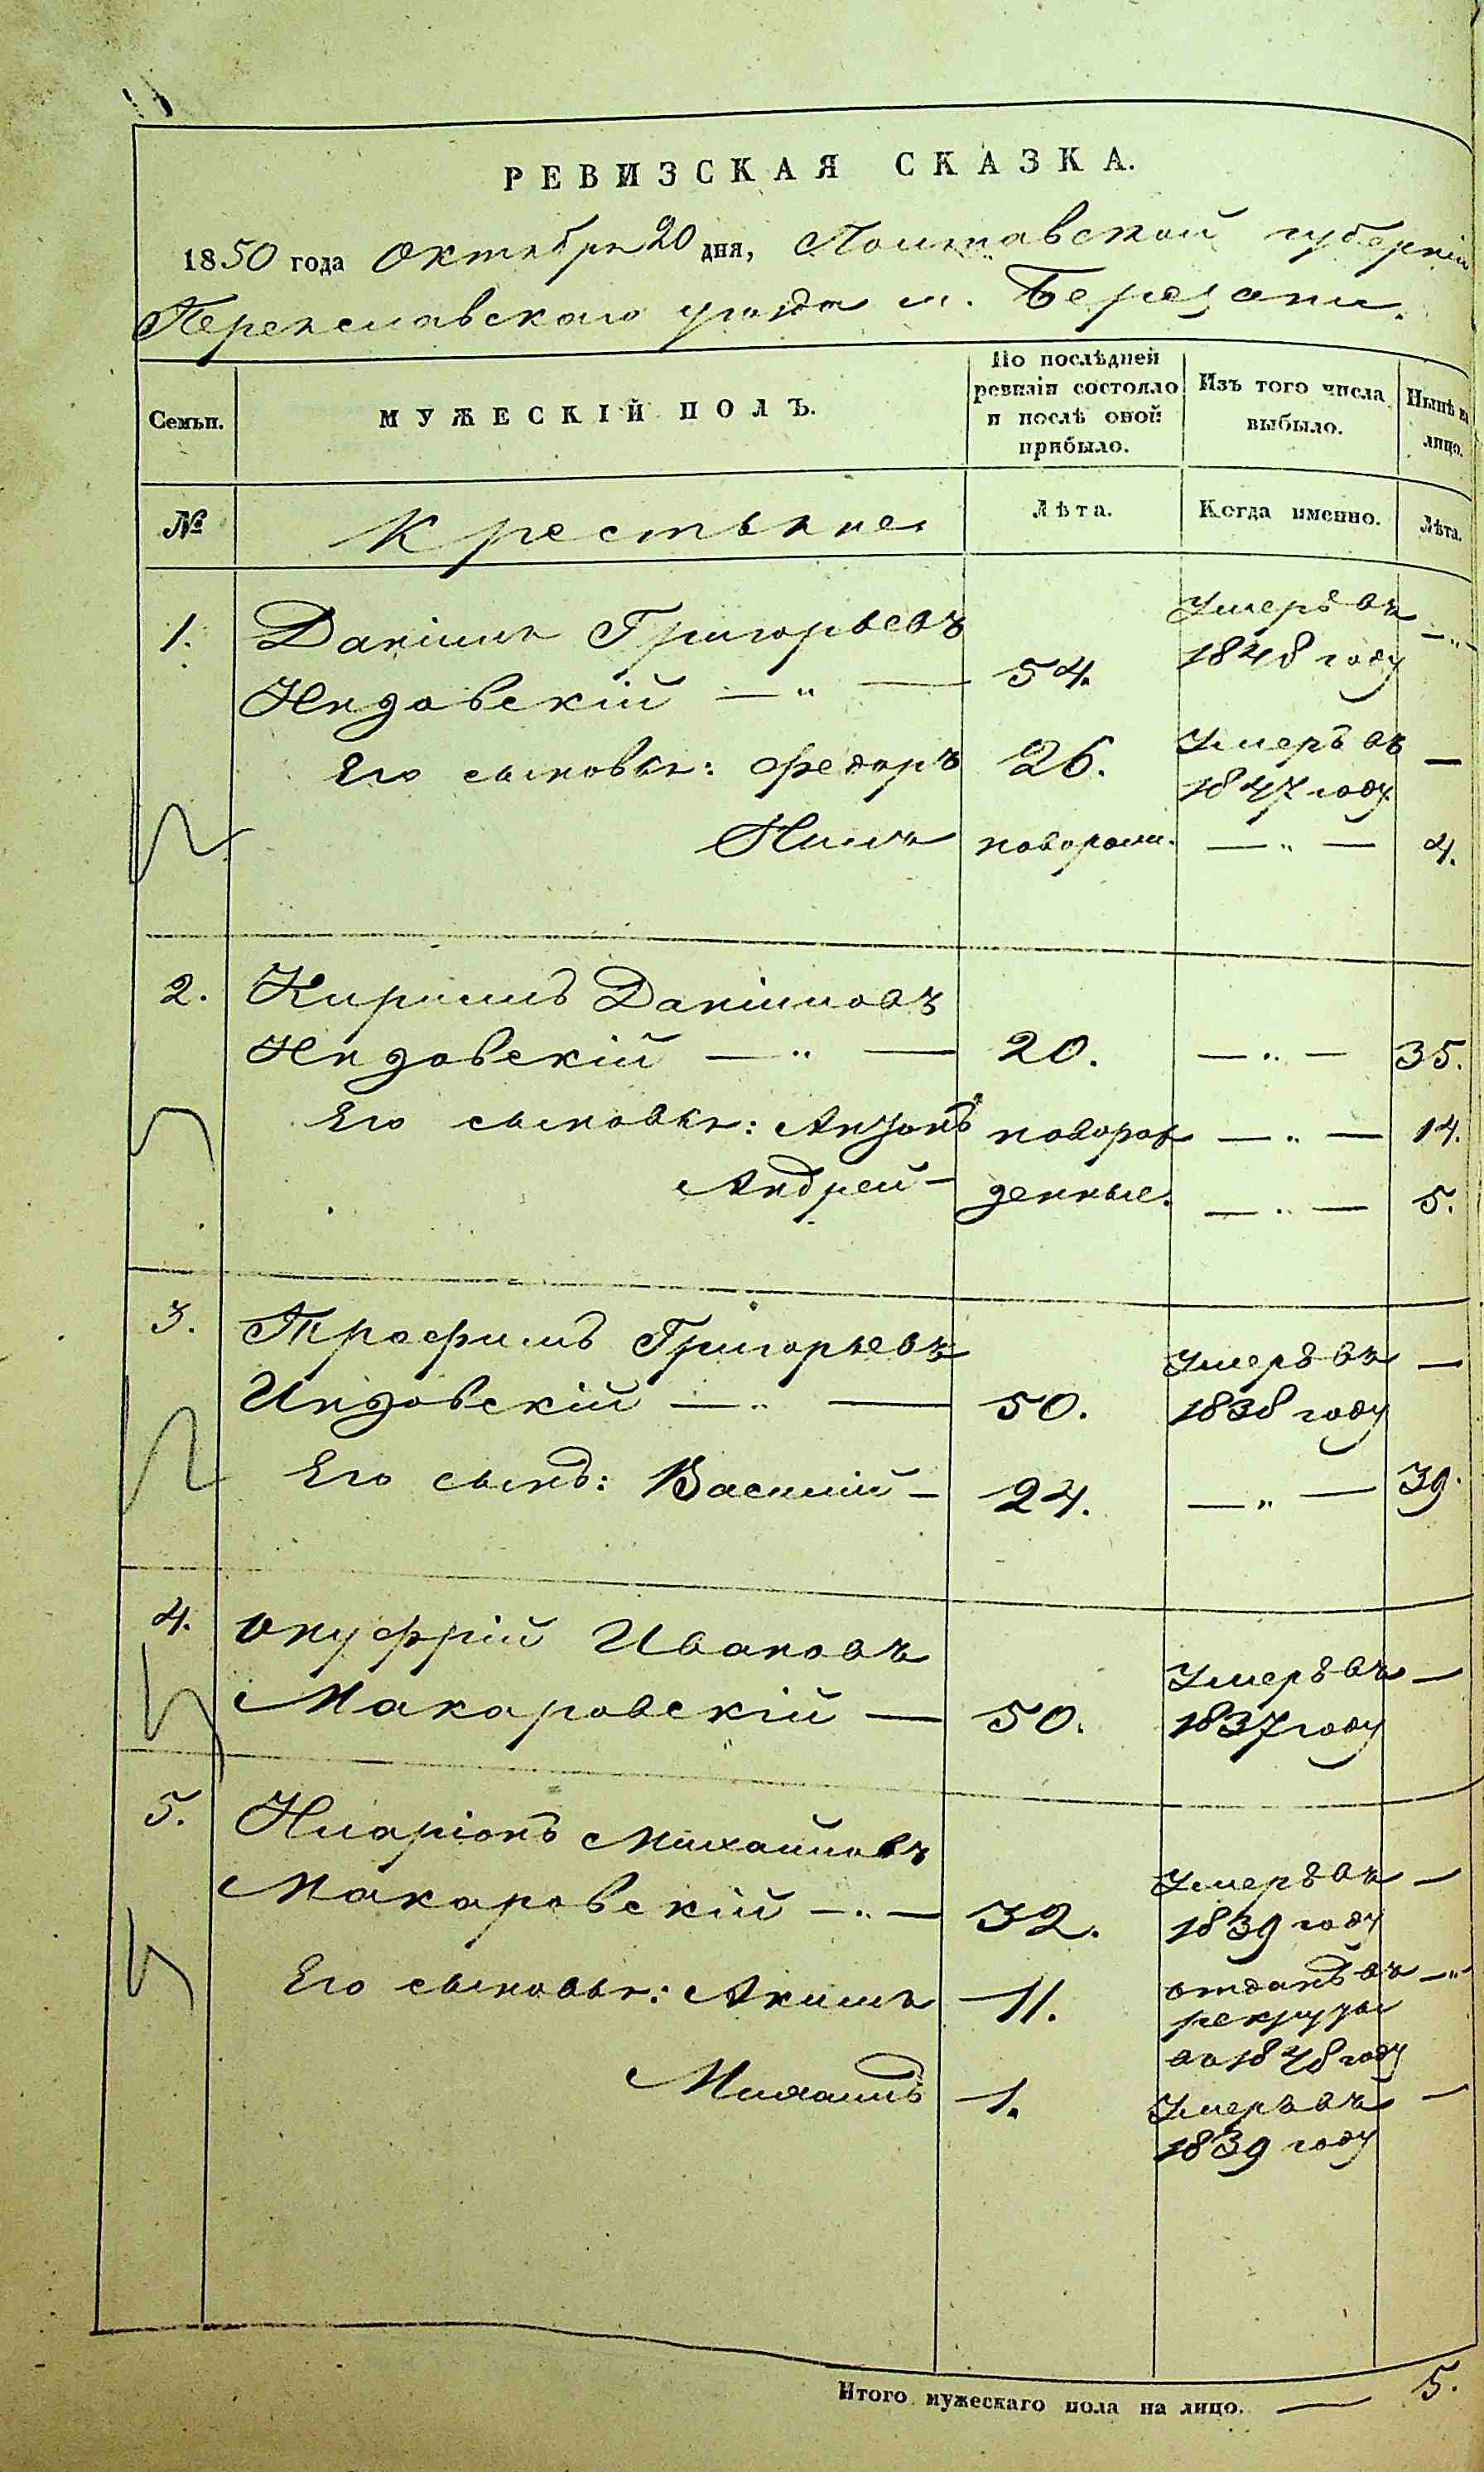 РЕВИЗСКАЯ СКАЗКА.
1850 года Октября 20 дня, Полтавской губерніи
Переяславскаго уѣзда м. Березани.
Семьи.
МУЖЕСКІЙ ПОЛЪ.
По послѣдней ревизіи состояло и послѣ оной прибыло.
Изъ того числа выбыло.
Нынѣ на лицо.
№
Крестьяне
Лѣта.
Когда именно.
Лѣта.
1. Даніилъ Григорьевъ Умеръ въ —"—
54. 1848 году
Его сыновья: Федоръ 26. Умеръ въ —
1847 году
новорожд. —"— 4.
2. Кирилъ Даніиловъ
—"— 20. —"— 35.
Его сыновья: Антонъ новорож —"— 14.
Андрей — денные. —"— 5.
3. Трофимъ Григорьевъ Умеръ въ —
—"— 50. 1838 году
Его сынъ: Василій — 24. —"— 39.
4. Онуфрій Ивановъ Умеръ въ —
Макаровскій — 50. 1837 году
5. Иларіонъ Михайловъ Умеръ въ —
Макаровскій —"— 32. 1839 году
Его сыновья: Акимъ 11. отданъ въ —"—
рекруты
во 1848 году
Михаилъ 1. Умеръ въ —
1839 году
Итого мужескаго пола на лицо. — 5.